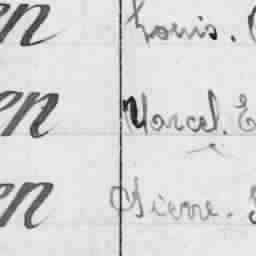 en Louis.
en Marcel. E
en Pierre.